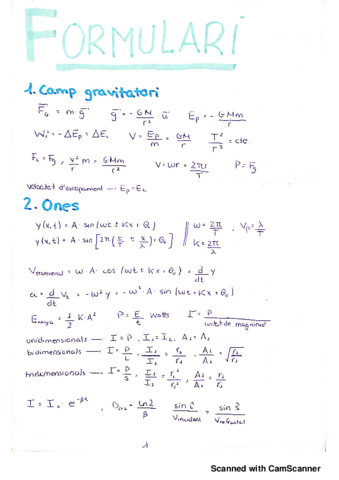 FORMULARI
1. Camp gravitatori
F⃗G = m g⃗   g⃗ = - GM/r² · u⃗   Ep = - GMm/r
W = -ΔEp = ΔEc   V = Ep/m = GM/r   T²/r³ = cte
Fc = Fg, v²/r m = GMm/r²   V = ωr = 2πr/T   P = Fg
velocitat d'escapament — Ep = Ec
2. Ones
y(x,t) = A · sin(ωt ± Kx + θ₀)   ω = 2π/T, Vp = λ/T
y(x,t) = A · sin[2π(t/T ± x/λ) + θ₀]   K = 2π/λ
Vtransversal = ω · A · cos(ωt ± Kx + θ₀) = d/dt y
a = d/dt Vt = -ω² y = -ω² · A · sin(ωt ± Kx + θ₀)
Energia = 1/2 K·A²   P = E/t Watts   I = P/unitat de magnitud
unidimensionals — I = P, I₁ = I₂, A₁ = A₂
bidimensionals — I = P/L, I₁/I₂ = r₂/r₁, A₁/A₂ = √(r₂/r₁)
tridimensionals — I = P/S, I₁/I₂ = r₂²/r₁², A₁/A₂ = r₂/r₁
I = I₀ · e^-βx, D1/2 = ln2/β   sin î/Vincident = sin r̂/Vrefractat
1
Scanned with CamScanner